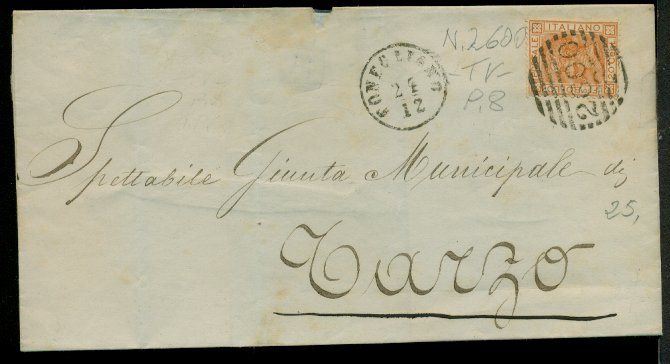 ITALIANO
N.2600
-TV-
P.8
CONEGLIANO
12
Spettabile Giunta Municipale di
25,
Tarzo